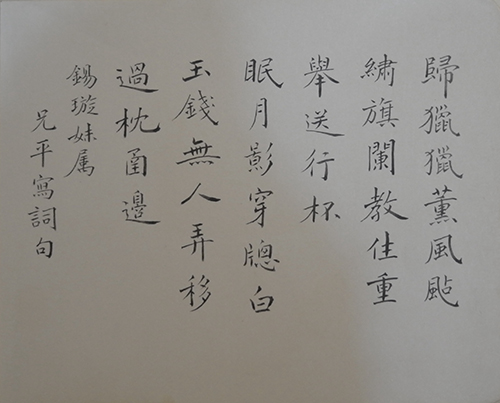 歸獵獵薰風颭
繡旗闌教住重
舉送行杯
眠月影穿牕白
玉錢無人弄移
過枕圅邊
錫璇妹属
兄平寫詞句